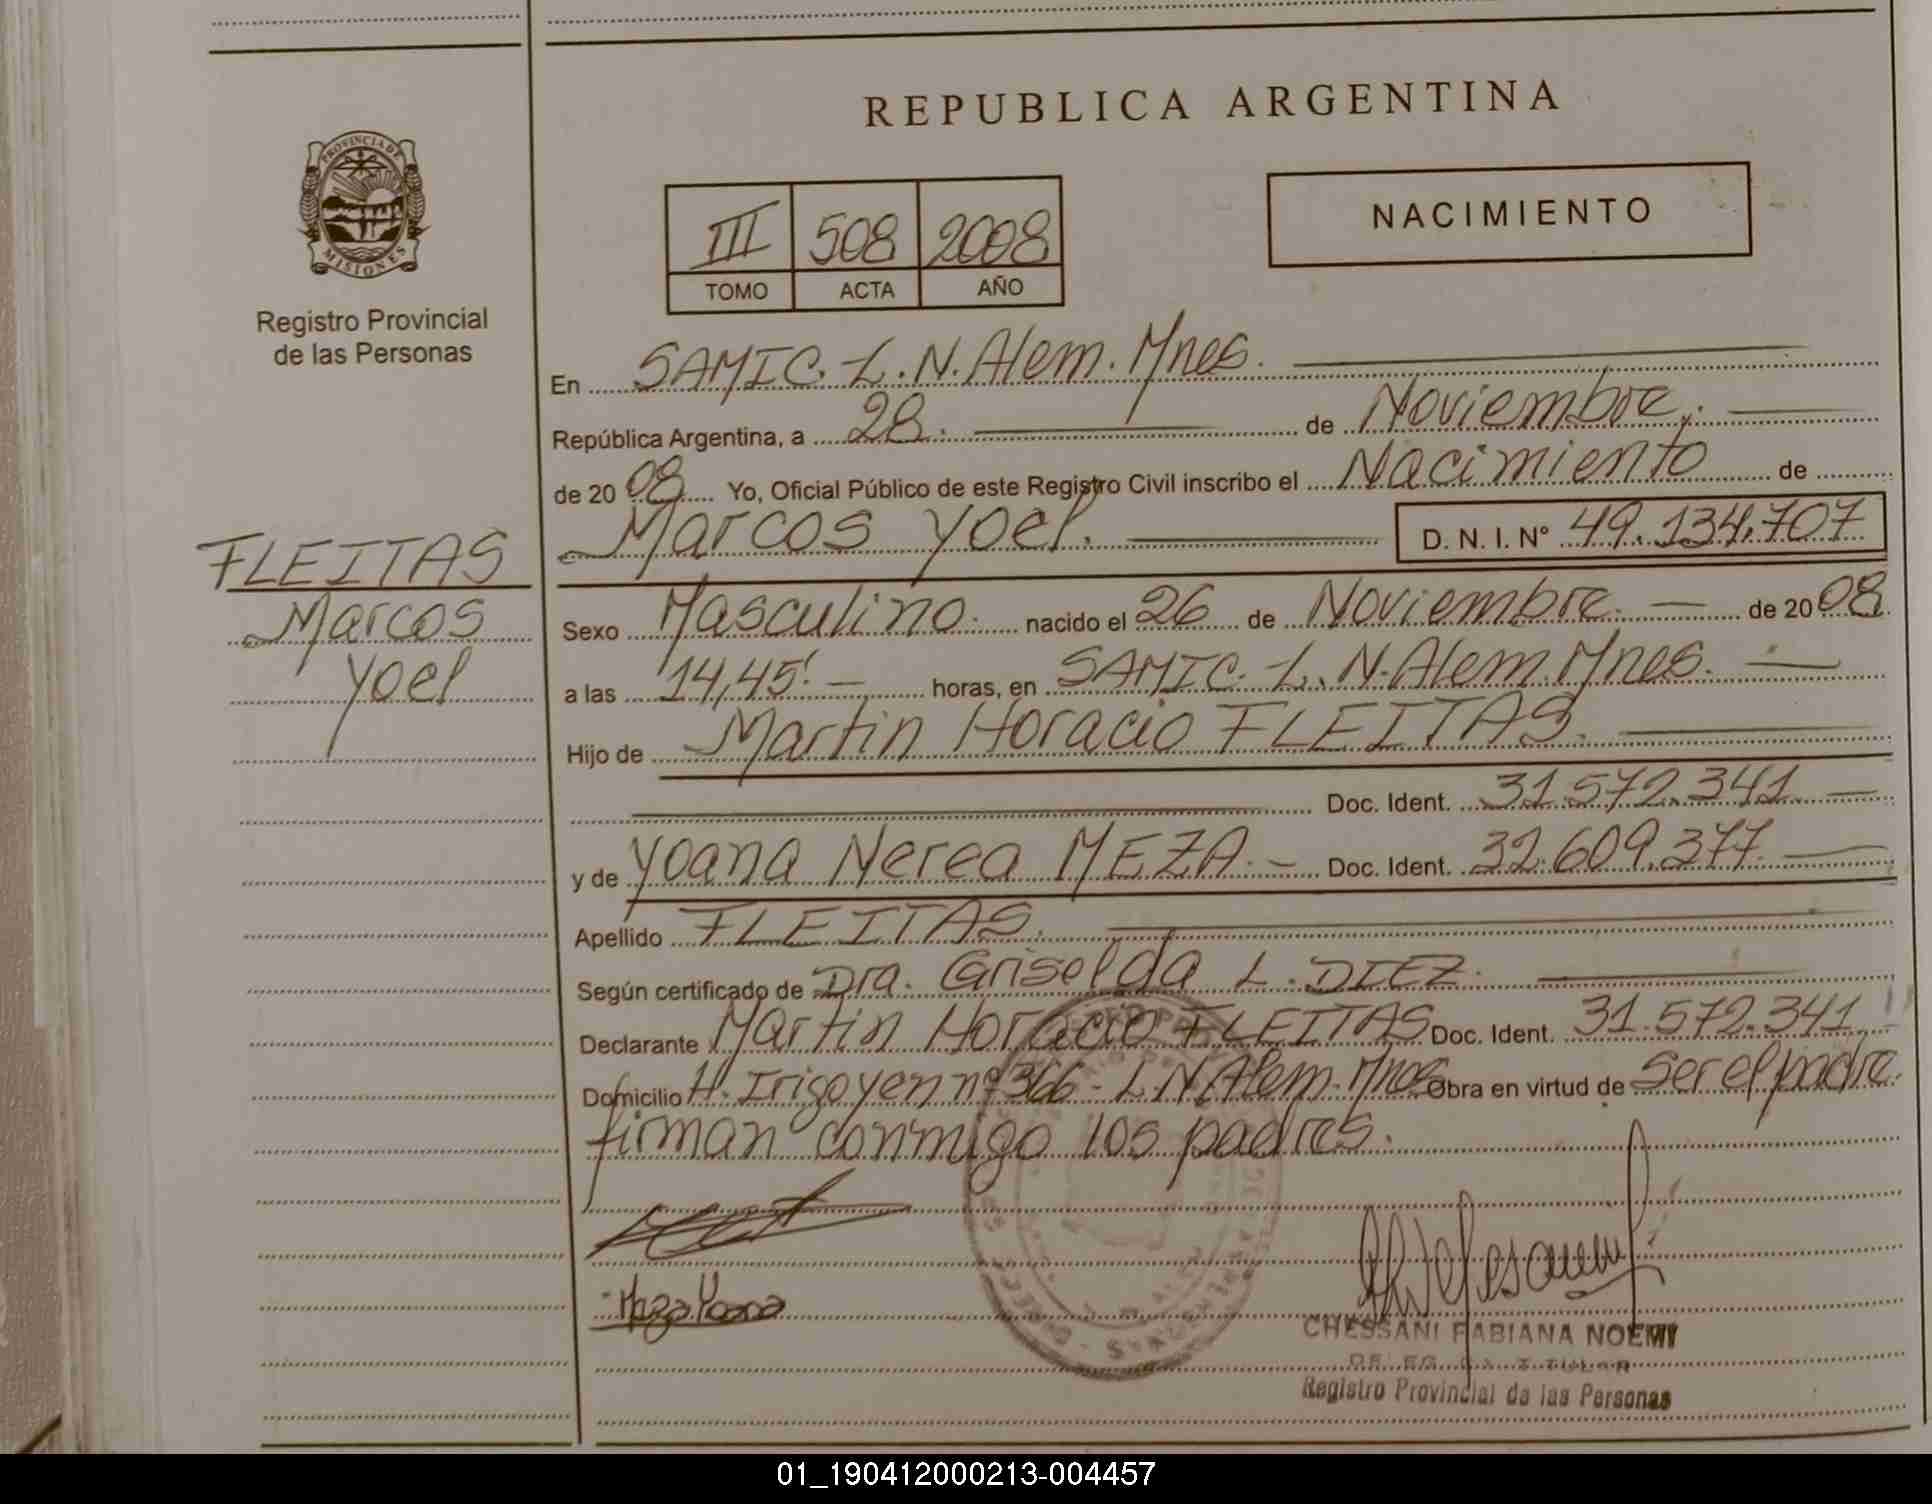 REPUBLICA ARGENTINA
PROVINCIA DE
MISIONES
Registro Provincial
de las Personas
III 508 2008
TOMO ACTA AÑO
NACIMIENTO
En SAMIC. L.N.Alem.Mnes.
República Argentina, a 28. de Noviembre.
de 20 08 Yo, Oficial Público de este Registro Civil inscribo el Nacimiento de
Marcos Yoel. D. N. I. N° 49.134.707
FLEITAS
Marcos
Yoel
Sexo Masculino. nacido el 26 de Noviembre. de 20 08.
a las 14,45'. horas, en SAMIC. L.N.Alem.Mnes.
Hijo de Martin Horacio FLEITAS.
Doc. Ident. 31.572.341.
y de Yoana Nerea MEZA. Doc. Ident. 32.609.377.
Apellido FLEITAS.
Según certificado de Dra. Griselda L. DIEZ.
Declarante Martin Horacio FLEITAS Doc. Ident. 31.572.341.
Domicilio H. Irigoyen nº 366 - L.N.Alem.Mnes Obra en virtud de ser el padre.
firman conmigo los padres.
Meza Yoana
CHESSANI FABIANA NOEMI
Registro Provincial de las Personas
01_190412000213-004457